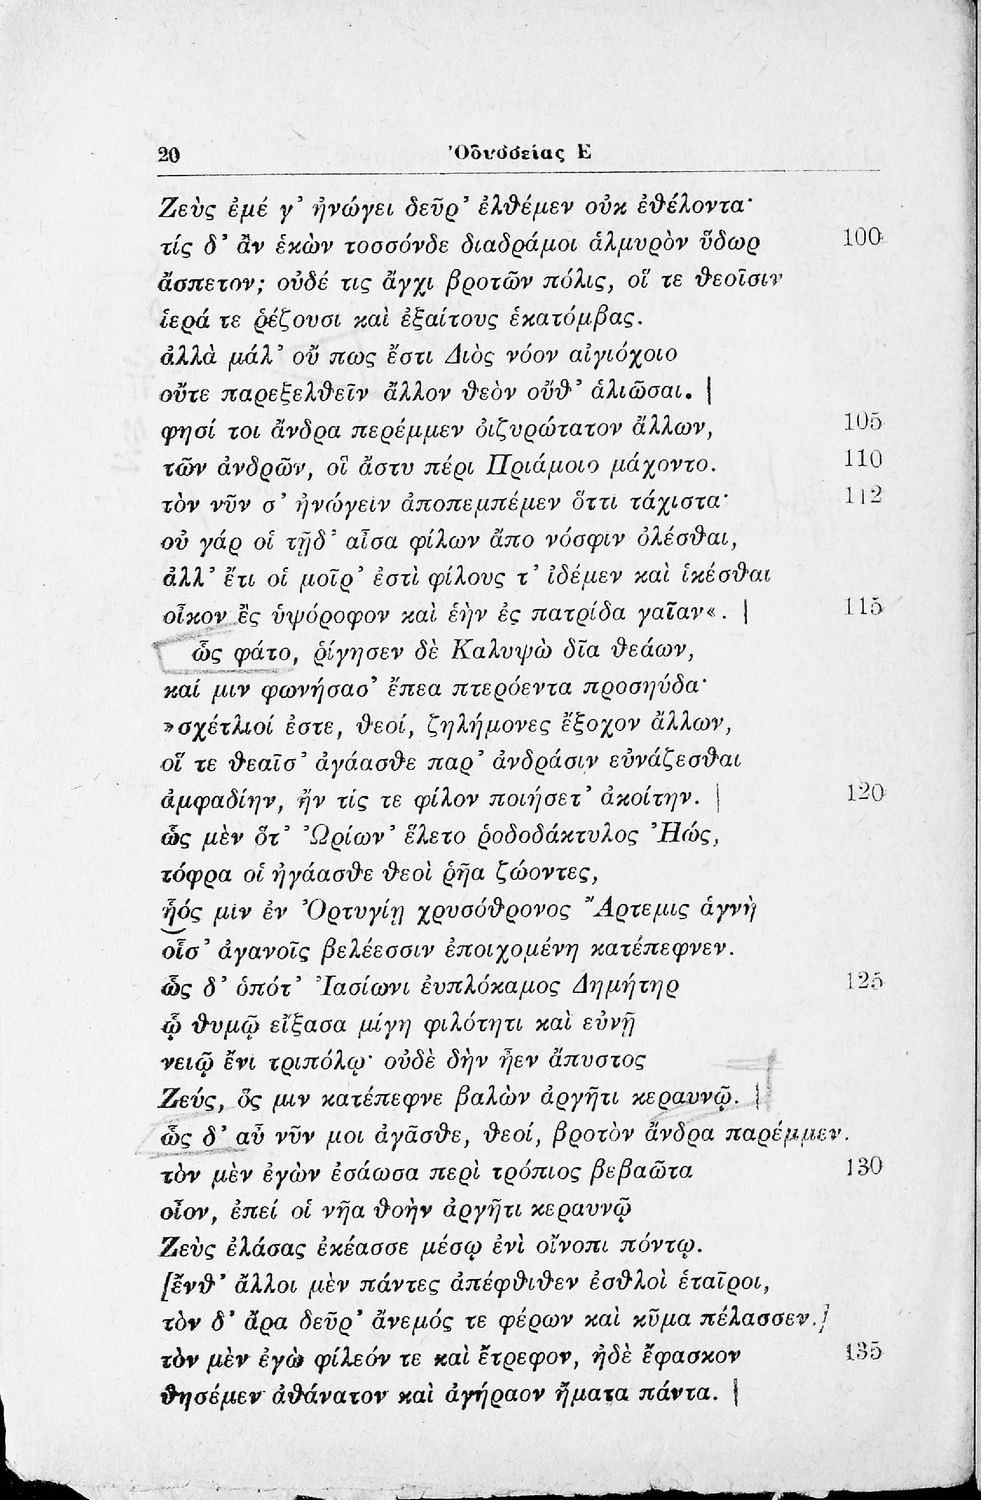 20 Ὀδυσσείας Ε
Ζεὺς ἐμέ γ’ ἠνώγει δεῦρ’ ἐλθέμεν οὐκ ἐθέλοντα·
τίς δ’ ἂν ἑκὼν τοσσόνδε διαδράμοι ἁλμυρὸν ὕδωρ 100
ἄσπετον; οὐδέ τις ἄγχι βροτῶν πόλις, οἵ τε θεοῖσιν
ἱερά τε ῥέζουσι καὶ ἐξαίτους ἑκατόμβας.
ἀλλὰ μάλ’ οὔ πως ἔστι Διὸς νόον αἰγιόχοιο
οὔτε παρεξελθεῖν ἄλλον θεὸν οὔθ’ ἁλιῶσαι. |
φησί τοι ἄνδρα περέμμεν ὀιζυρώτατον ἄλλων, 105
τῶν ἀνδρῶν, οἳ ἄστυ πέρι Πριάμοιο μάχοντο. 110
τὸν νῦν σ’ ἠνώγειν ἀποπεμπέμεν ὅττι τάχιστα· 112
οὐ γάρ οἱ τῇδ’ αἶσα φίλων ἄπο νόσφιν ὀλέσθαι,
ἀλλ’ ἔτι οἱ μοῖρ’ ἐστὶ φίλους τ’ ἰδέμεν καὶ ἱκέσθαι
οἶκον ἒς ὑψόροφον καὶ ἑὴν ἐς πατρίδα γαῖαν«. | 115
ὣς φάτο, ῥίγησεν δὲ Καλυψὼ δῖα θεάων,
καί μιν φωνήσασ’ ἔπεα πτερόεντα προσηύδα·
»σχέτλιοί ἐστε, θεοί, ζηλήμονες ἔξοχον ἄλλων,
οἵ τε θεαῖσ’ ἀγάασθε παρ’ ἀνδράσιν εὐνάζεσθαι
ἀμφαδίην, ἤν τίς τε φίλον ποιήσετ’ ἀκοίτην. | 120
ὣς μὲν ὅτ’ Ὠρίων’ ἕλετο ῥοδοδάκτυλος Ἠώς,
τόφρα οἱ ἠγάασθε θεοὶ ῥῆα ζώοντες,
ἧός μιν ἐν Ὀρτυγίῃ χρυσόθρονος Ἄρτεμις ἁγνὴ
οἷσ’ ἀγανοῖς βελέεσσιν ἐποιχομένη κατέπεφνεν.
ὣς δ’ ὁπότ’ Ἰασίωνι ἐυπλόκαμος Δημήτηρ 125
ᾧ θυμῷ εἴξασα μίγη φιλότητι καὶ εὐνῇ
νειῷ ἔνι τριπόλῳ· οὐδὲ δὴν ἦεν ἄπυστος
Ζεύς, ὅς μιν κατέπεφνε βαλὼν ἀργῆτι κεραυνῷ. |
ὣς δ’ αὖ νῦν μοι ἀγᾶσθε, θεοί, βροτὸν ἄνδρα παρέμμεν.
τὸν μὲν ἐγὼν ἐσάωσα περὶ τρόπιος βεβαῶτα 130
οἶον, ἐπεί οἱ νῆα θοὴν ἀργῆτι κεραυνῷ
Ζεὺς ἐλάσας ἐκέασσε μέσῳ ἐνὶ οἴνοπι πόντῳ.
[ἔνθ’ ἄλλοι μὲν πάντες ἀπέφθιθεν ἐσθλοὶ ἑταῖροι,
τὸν δ’ ἄρα δεῦρ’ ἄνεμός τε φέρων καὶ κῦμα πέλασσεν.]
τὸν μὲν ἐγὼ φίλεόν τε καὶ ἔτρεφον, ἠδὲ ἔφασκον 135
θησέμεν ἀθάνατον καὶ ἀγήραον ἤματα πάντα. |